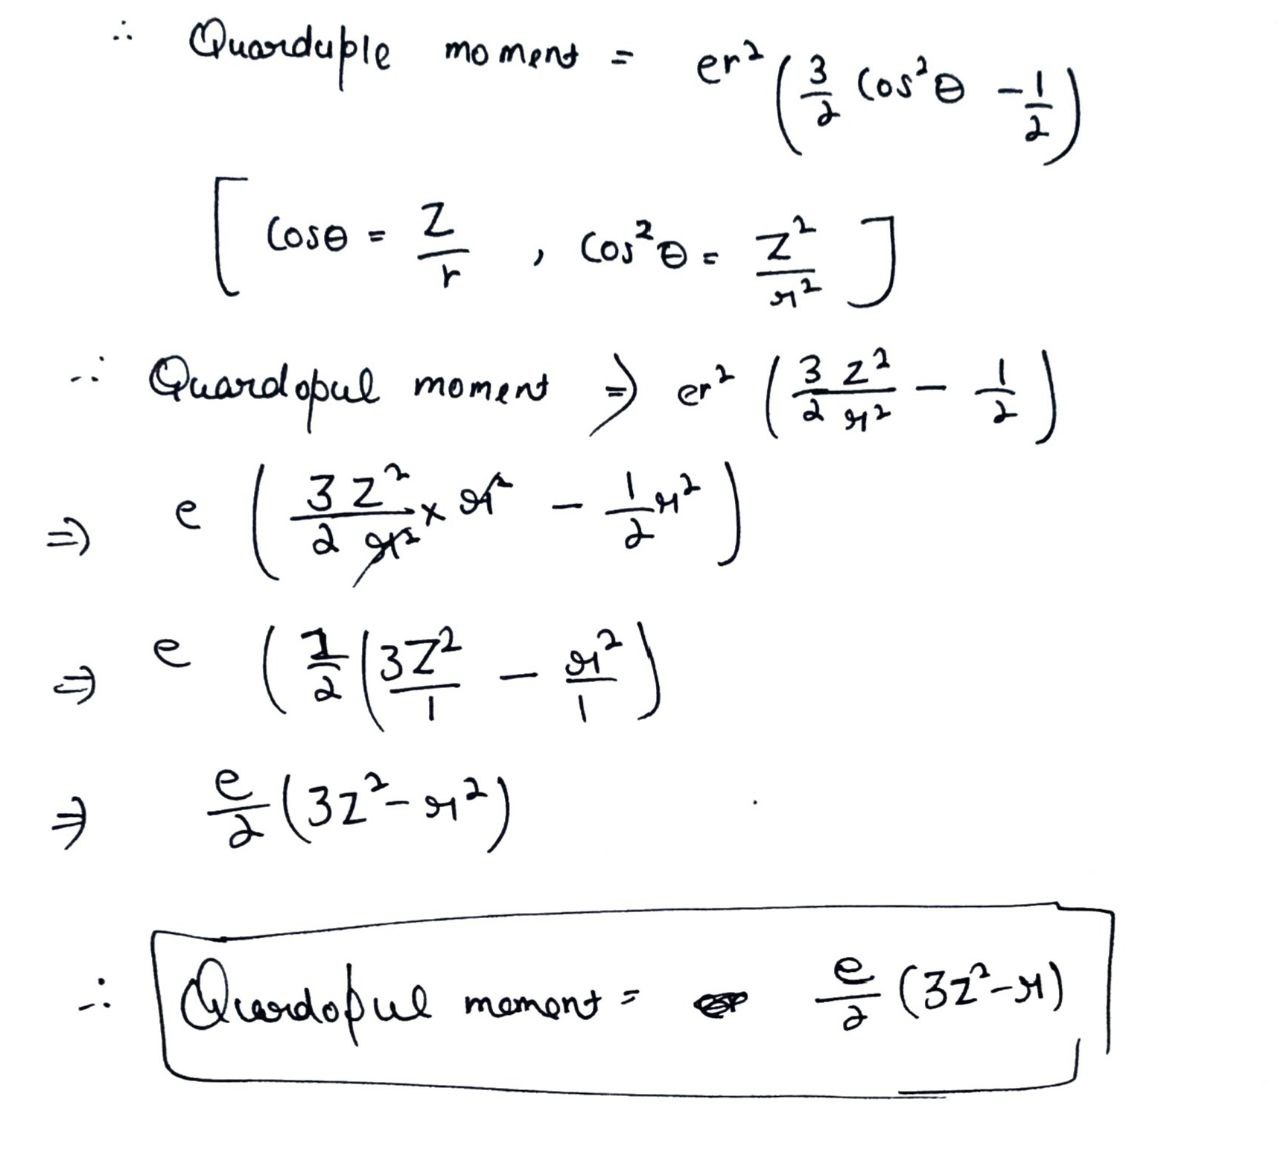 ∴ Quarduple moment = er² (3/2 Cos²θ - 1/2)
[ Cosθ = Z/r , Cos²θ = Z²/r² ]
∴ Quardopul moment ⇒ er² (3 Z²/2 r² - 1/2)
⇒ e (3 Z²/2 r² × r² - 1/2 r²)
⇒ e (1/2 (3Z²/1 - r²/1)
⇒ e/2 (3Z² - r²)
∴ Quardopul moment = e/2 (3Z² - r)